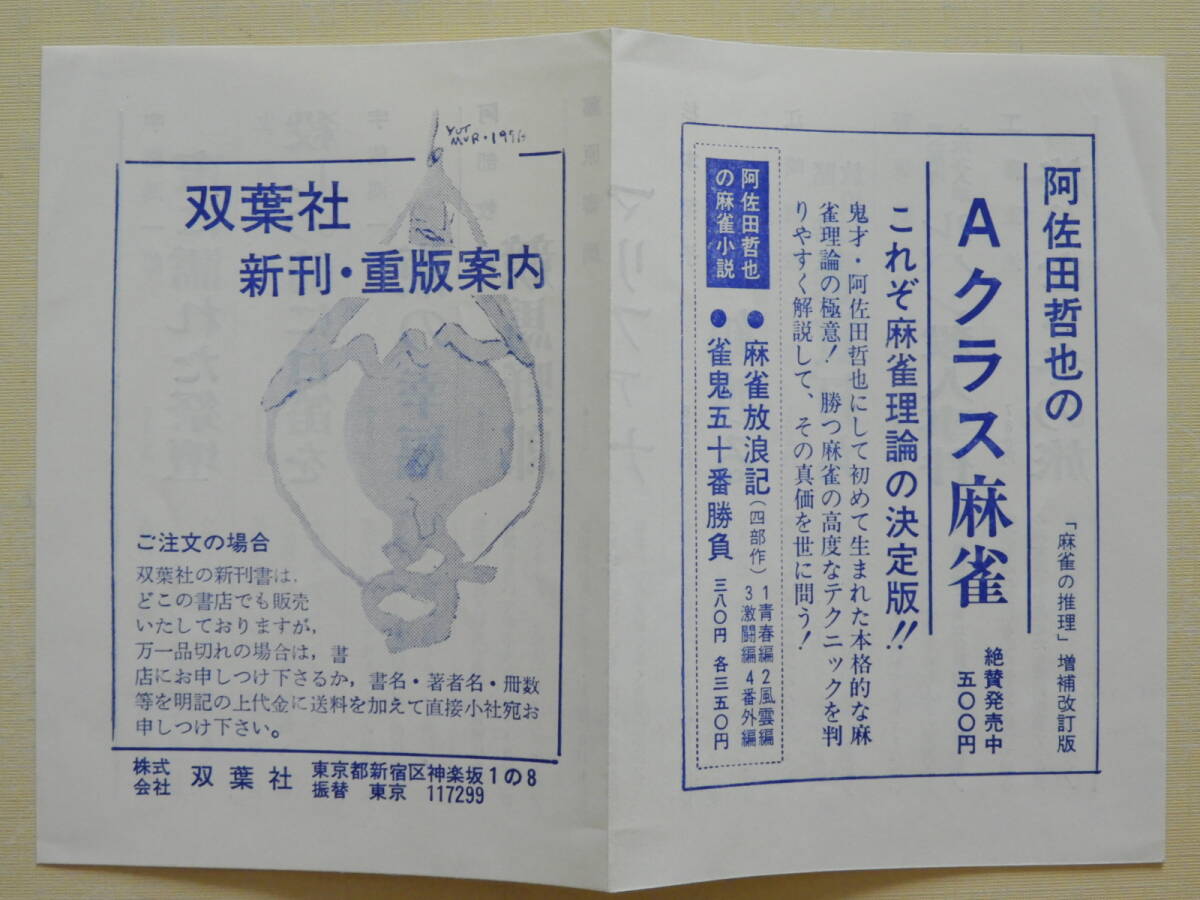 阿佐田哲也の
「麻雀の推理」増補改訂版
Aクラス麻雀
絶賛発売中
五〇〇円
これぞ麻雀理論の決定版!!
鬼才・阿佐田哲也にして初めて生まれた本格的な麻
雀理論の極意! 勝つ麻雀の高度なテクニックを判
りやすく解説して、その真価を世に問う!
阿佐田哲也
の麻雀小説
●麻雀放浪記(四部作)1青春編 2風雲編
3激闘編 4番外編
各三五〇円
●雀鬼五十番勝負 三八〇円
双葉社
新刊・重版案内
ご注文の場合
双葉社の新刊書は,
どこの書店でも販売
いたしておりますが,
万一品切れの場合は,書
店にお申しつけ下さるか,書名・著者名・冊数
等を明記の上代金に送料を加えて直接小社宛お
申しつけ下さい。
株式
会社 双葉社 東京都新宿区神楽坂1の8
振替 東京 117299